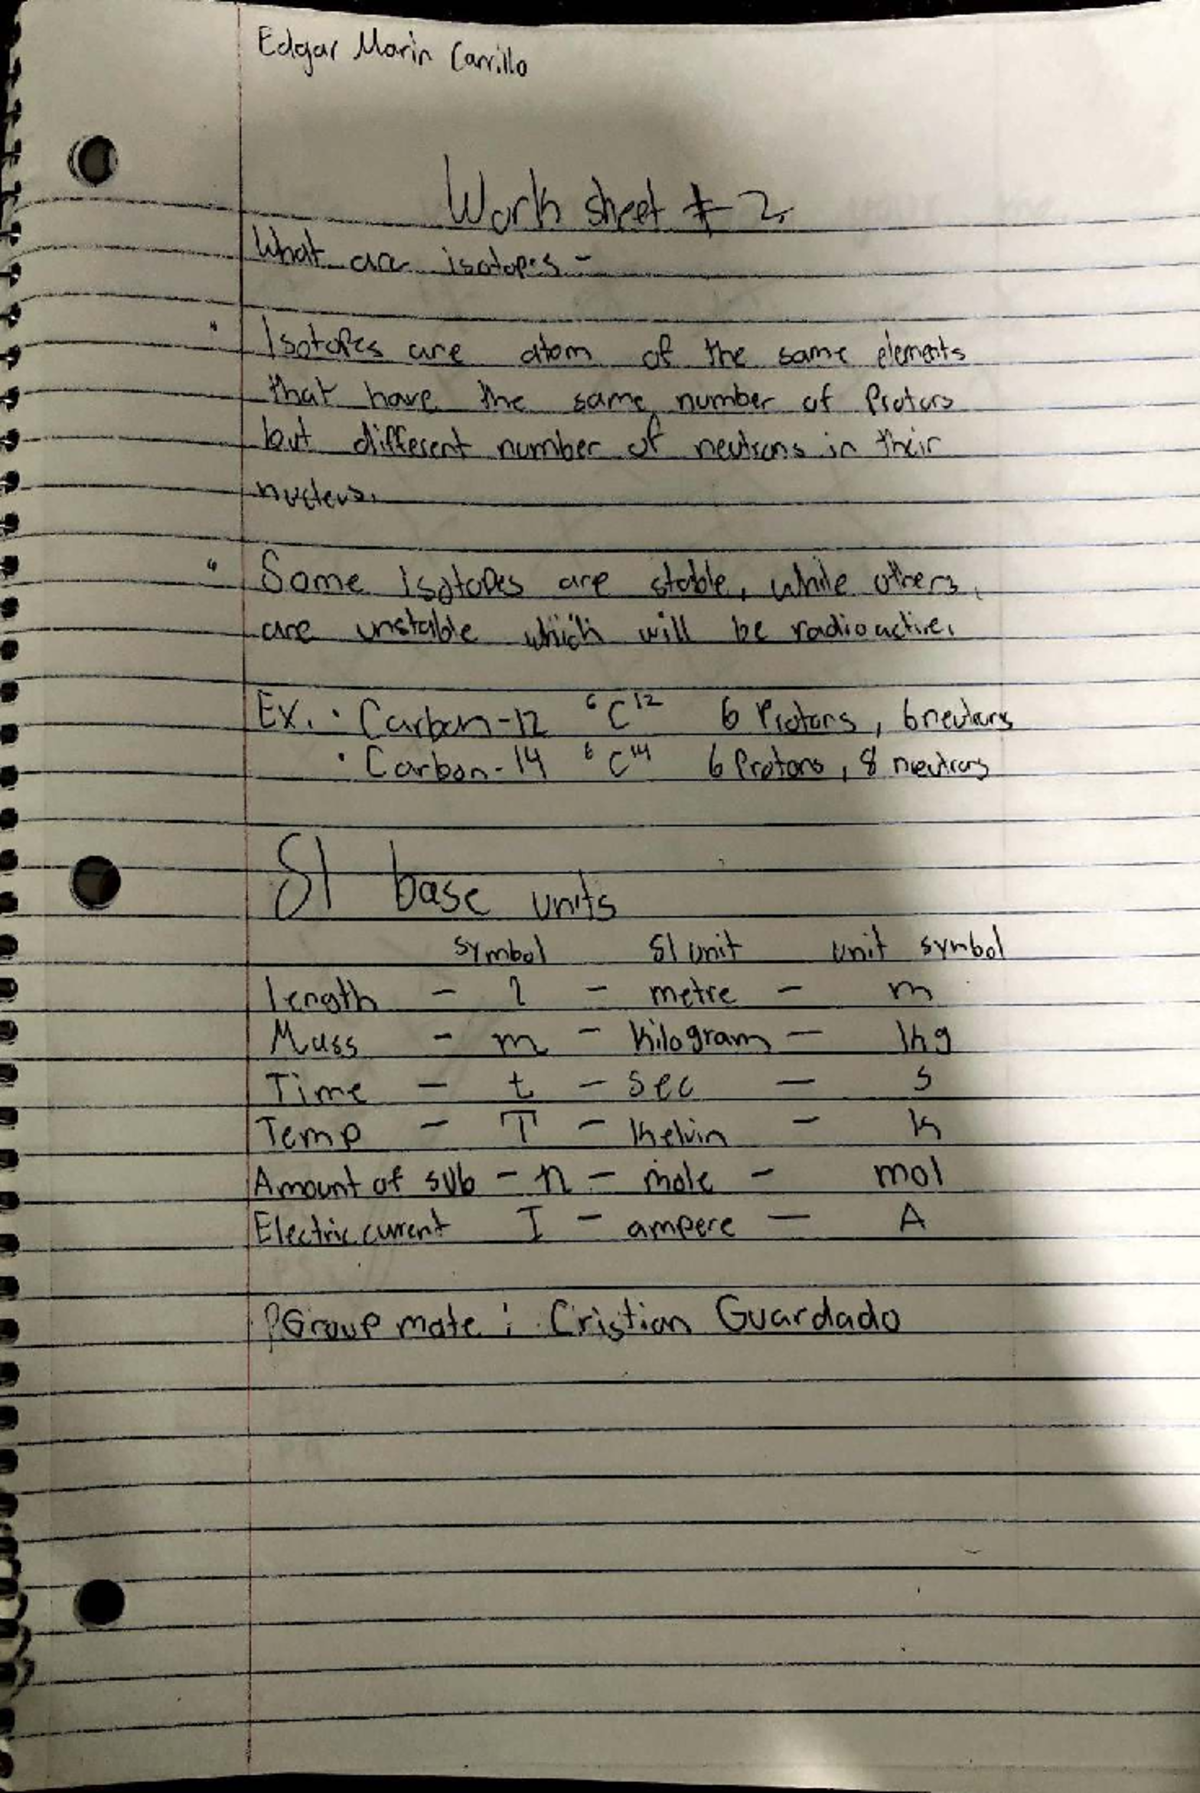 Edgar Marin Carrillo
Work sheet # 2
What are isotopes -
Isotopes are atom of the same elements
that have the same number of Protons
but different number of neutrons in their
nucleus.
Some Isotopes are stable, while others,
are unstable which will be radioactive.
Ex. • Carbon-12 ⁶C¹² 6 Protons, 6 neutrons
• Carbon-14 ⁶C¹⁴ 6 Protons, 8 neutrons
SI base units
symbol SI unit unit symbol
length - l - metre - m
Mass - m - kilogram - kg
Time - t - sec - s
Temp - T - Kelvin - k
Amount of sub - n - mole - mol
Electric current I - ampere - A
Group mate : Cristian Guardado